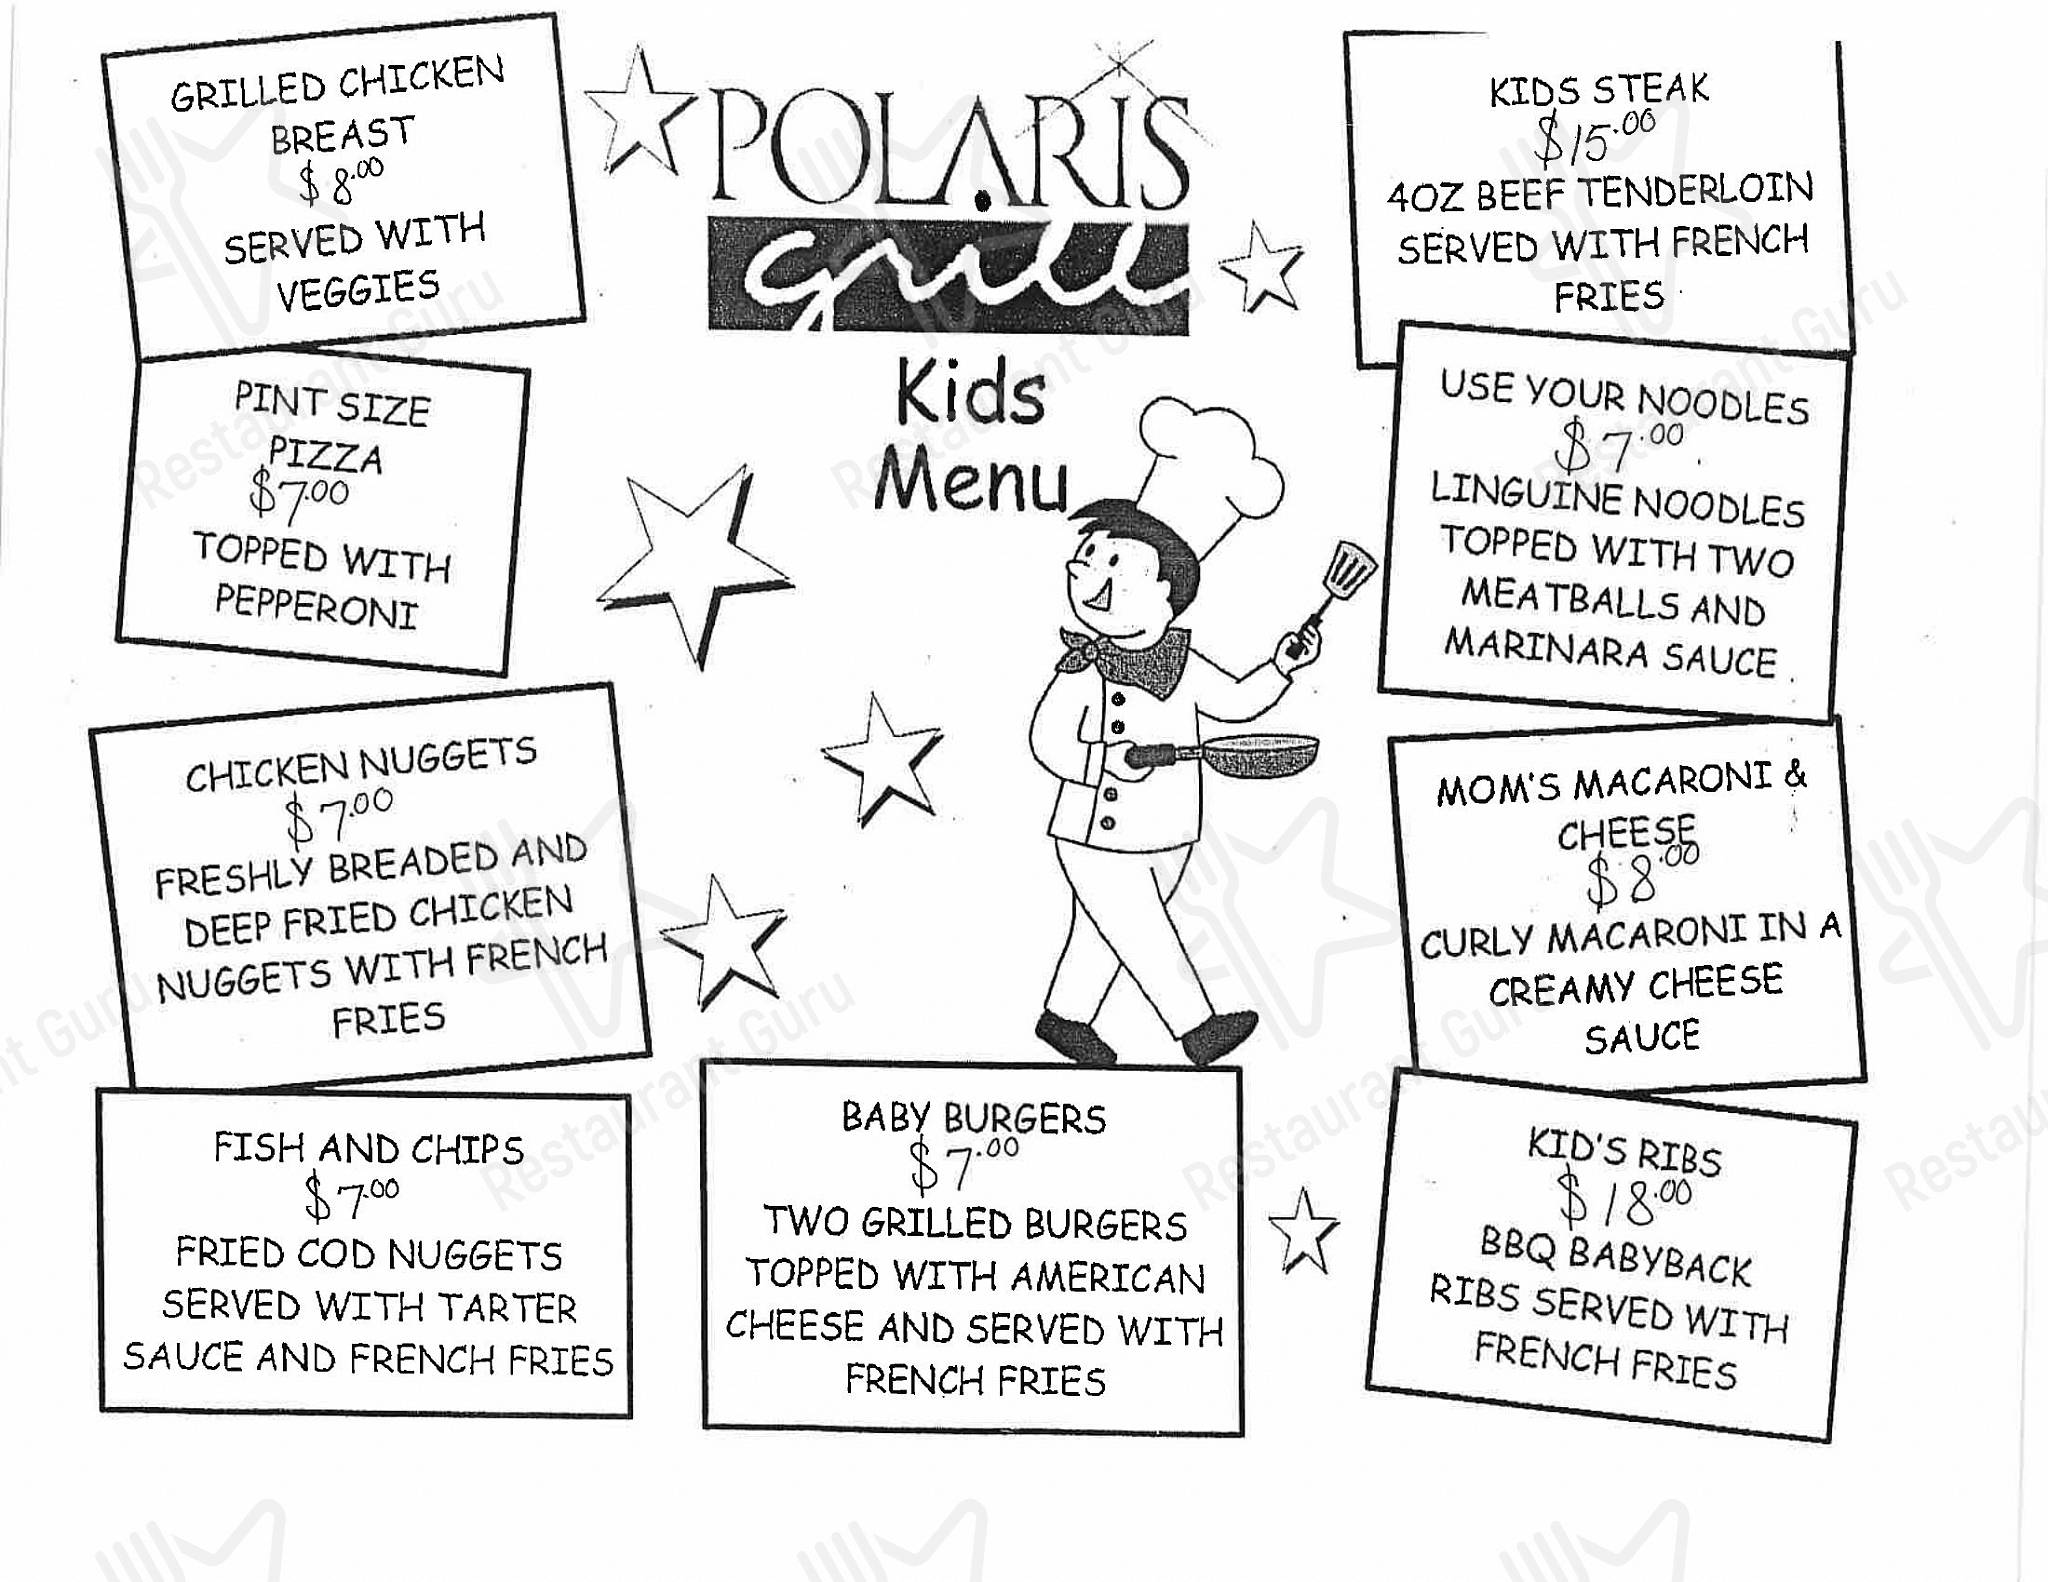 POLARIS
grill
Kids
Menu
GRILLED CHICKEN
BREAST
$8.00
SERVED WITH
VEGGIES
PINT SIZE
PIZZA
$7.00
TOPPED WITH
PEPPERONI
CHICKEN NUGGETS
$7.00
FRESHLY BREADED AND
DEEP FRIED CHICKEN
NUGGETS WITH FRENCH
FRIES
FISH AND CHIPS
$7.00
FRIED COD NUGGETS
SERVED WITH TARTER
SAUCE AND FRENCH FRIES
BABY BURGERS
$7.00
TWO GRILLED BURGERS
TOPPED WITH AMERICAN
CHEESE AND SERVED WITH
FRENCH FRIES
KIDS STEAK
$15.00
4OZ BEEF TENDERLOIN
SERVED WITH FRENCH
FRIES
USE YOUR NOODLES
$7.00
LINGUINE NOODLES
TOPPED WITH TWO
MEATBALLS AND
MARINARA SAUCE
MOM'S MACARONI &
CHEESE
$8.00
CURLY MACARONI IN A
CREAMY CHEESE
SAUCE
KID'S RIBS
$18.00
BBQ BABYBACK
RIBS SERVED WITH
FRENCH FRIES
Restaurant Guru
Restaurant Guru
Restaurant Guru
nt Guru
Restaurant Guru
Restaurant Guru
Restau